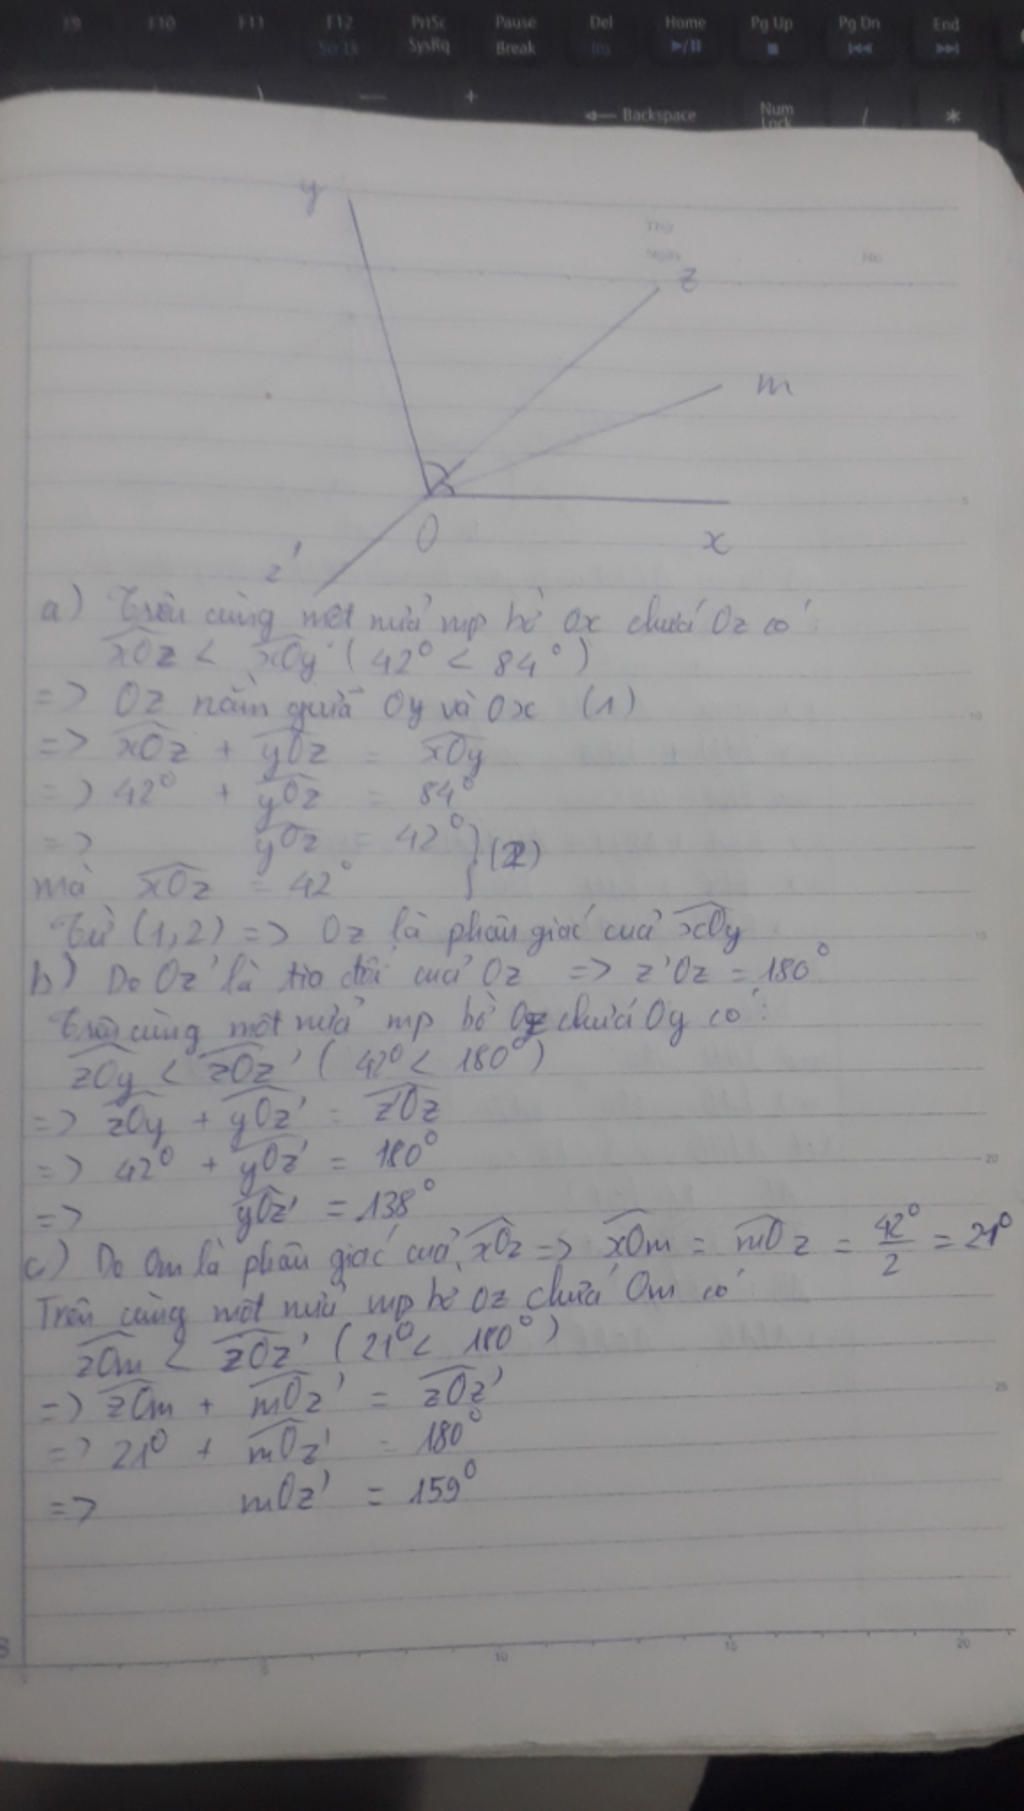 F9 F10 F11 F12 PrtSc Pause Del Home Pg Up Pg Dn End
Scr Lk SysRq Break Ins
Backspace Num Lock / *
y
z
m
O
x
z'
a) Trên cùng một nửa mp bờ Ox chứa Oz có:
xOz < xOy (42° < 84°)
=> Oz nằm giữa Oy và Ox (1)
=> xOz + yOz = xOy
=> 42° + yOz = 84°
=> yOz = 42° } (2)
mà xOz = 42°
Từ (1,2) => Oz là phân giác của xOy
b) Do Oz' là tia đối của Oz => z'Oz = 180°
Trên cùng một nửa mp bờ Oz chứa Oy có:
zOy < zOz' (42° < 180°)
=> zOy + yOz' = z'Oz
=> 42° + yOz' = 180°
=> yOz' = 138°
c) Do Om là phân giác của xOz => xOm = mOz = 42°/2 = 21°
Trên cùng một nửa mp bờ Oz chứa Om có
zOm < zOz' (21° < 180°)
=> zOm + mOz' = zOz'
=> 21° + mOz' = 180°
=> mOz' = 159°
5
10
15
20
25
5 10 15 20